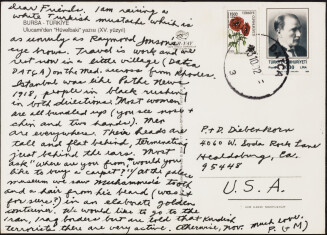 dear Friends. I am raising a
white Turkish mustache which is
BURSA - TÜRKİYE
Ulucami'den "Hüvelbaki" yazısı (XV. yüzyıl)
as scruffy as Raymond Jonson's
eye brow. Travel is work and we
rest now in a little village (DATCA
DATÇA) on the Med. across from Rhodes.
Istanbul was like Pathe News
1918, people in black rushing
in both directions. Most women
are all bundled up (you see nose,
chin and two hands). Men
are everywhere. Their heads are
tall and flat behind, terminating
just behind the ears. Most
ask "where are you from, would you
like to buy a carpet?" At the palace
museum we saw Muchammed's tooth
and a hair from his beard (was it
for sure?) in an elaborate golden
container. We would like to go to the
Iran, Iraq borders but are told that Kurdish
terrorists there are very active. Otherwise, Nov. much love.
P. & M)
P + D Diebenkorn
4060 W. Soda Rock Lane
Healdsburg, Ca.
95448
U.S.A.
1000
TÜRKİYE
TÜRKİYE CUMHURİYETİ
10.12
3